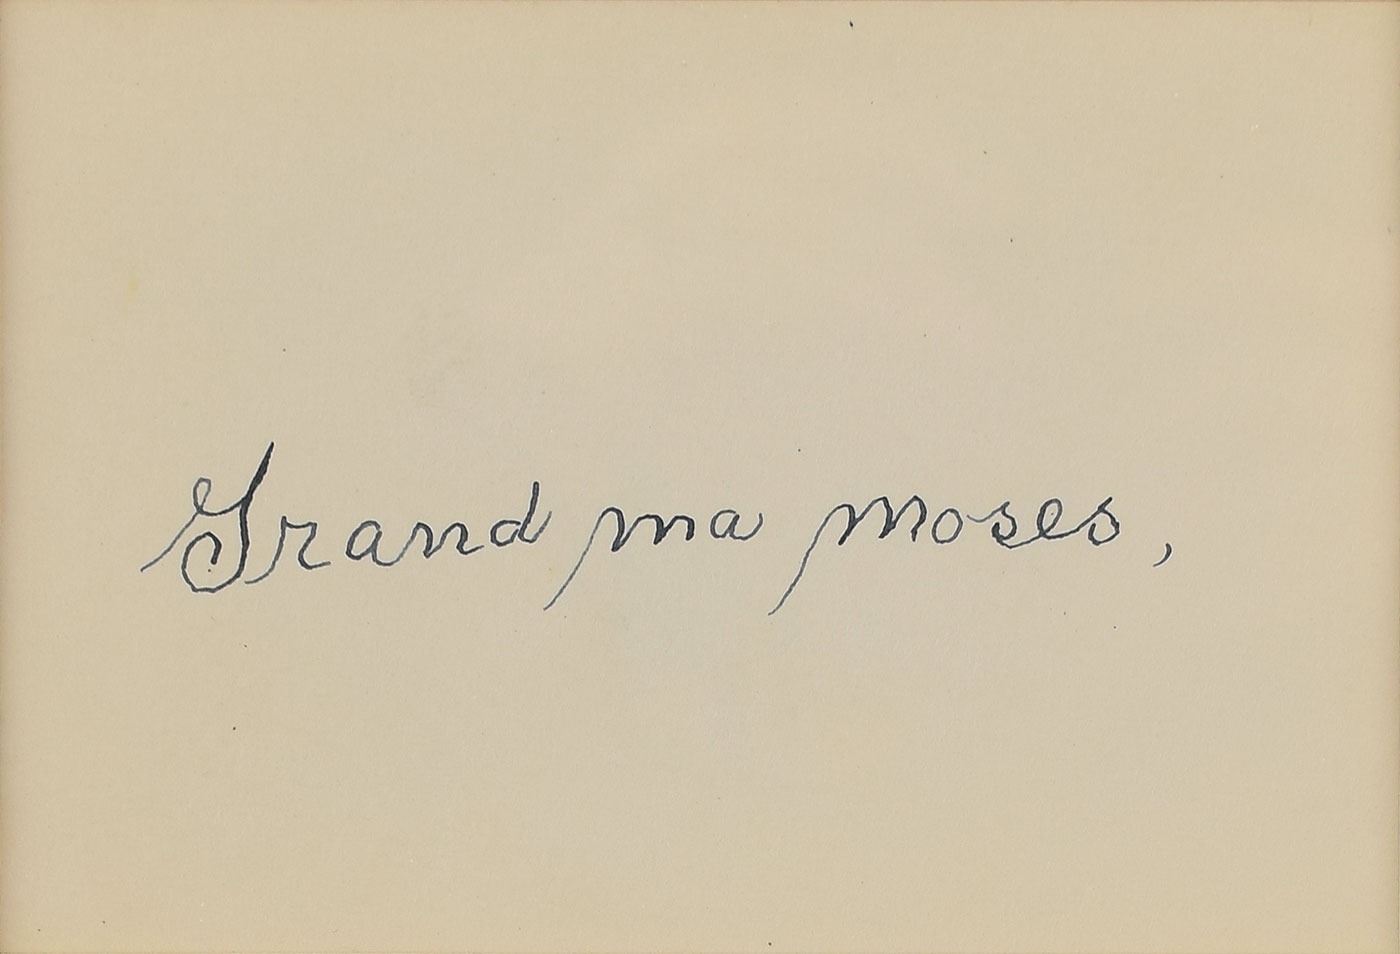 Grand ma moses,